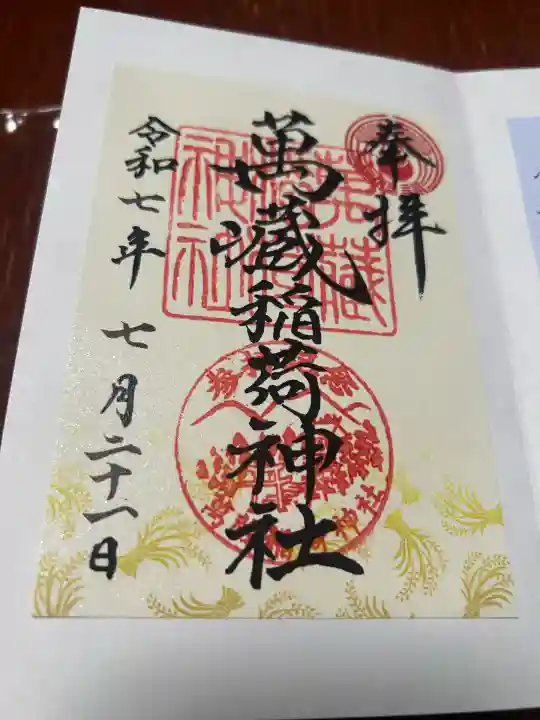 奉拝
萬藏稲荷神社
令和七年 七月二十一日